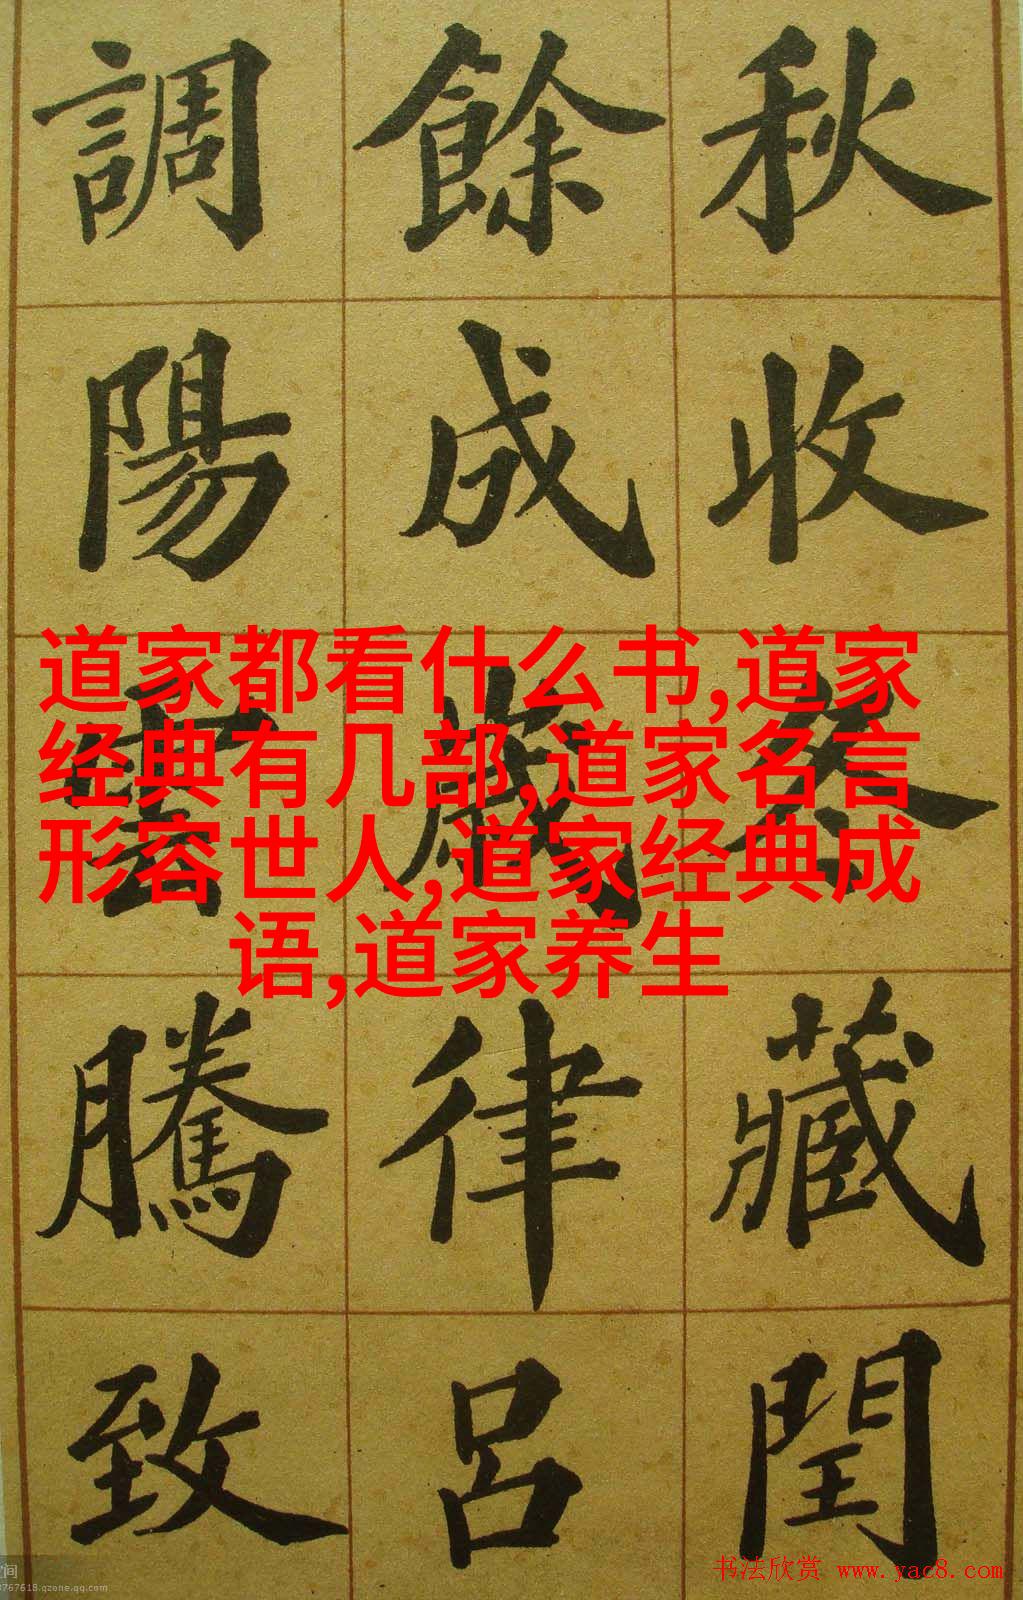 秋收冬藏閏
餘成歲律呂
調陽雲騰致
道家都看什么书,道家
经典有几部,道家名言
形容世人,道家经典成
语,道家养生
书法欣赏 www.yac8.com
空间
3767618.qzone.qq.com